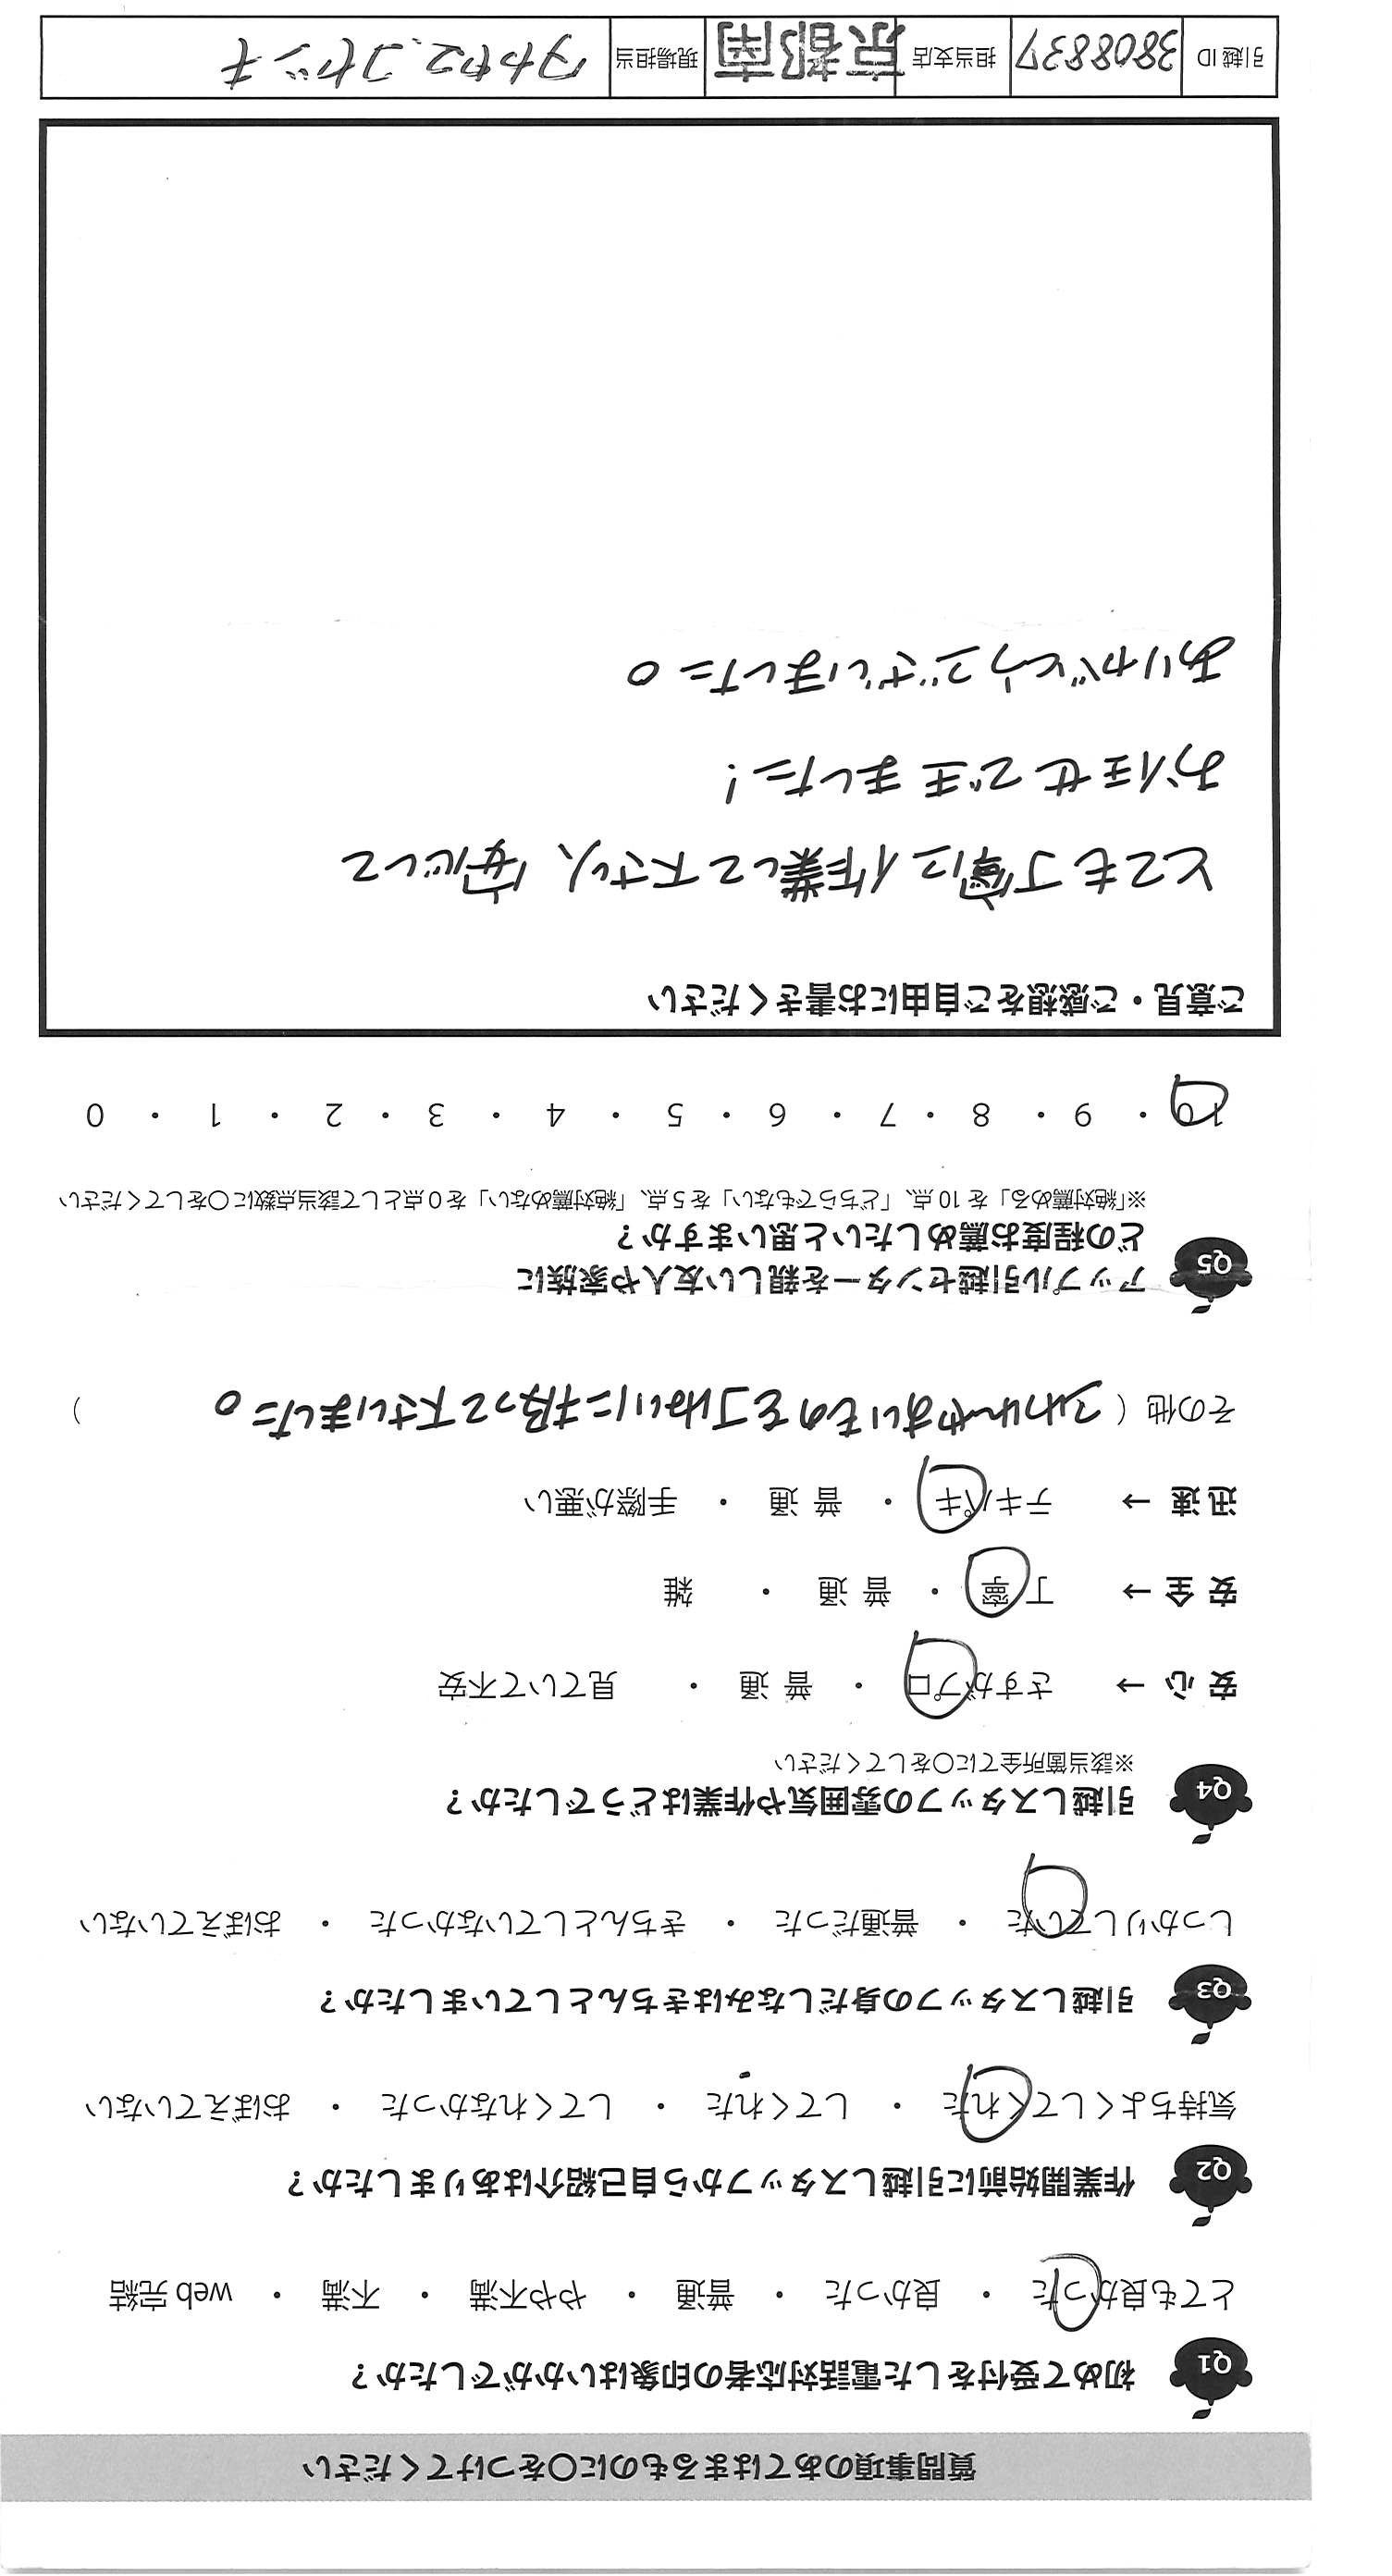 質問事項のあてはまるものに〇をつけてください
Q1 初めて受付をした電話対応者の印象はいかがでしたか？
とても良かった ・ 良かった ・ 普通 ・ やや不満 ・ 不満 ・ web 完結
Q2 作業開始前に引越しスタッフから自己紹介はありましたか？
気持ちよくしてくれた ・ してくれた ・ してくれなかった ・ おぼえていない
Q3 引越しスタッフの身だしなみはきちんとしていましたか？
しっかりしていた ・ 普通だった ・ きちんとしていなかった ・ おぼえていない
Q4 引越しスタッフの雰囲気や作業はどうでしたか？
※該当箇所全てに〇をしてください
安心 → さすがプロ ・ 普通 ・ 見ていて不安
安全 → 丁寧 ・ 普通 ・ 雑
迅速 → テキパキ ・ 普通 ・ 手際が悪い
その他 ( われやすいものをていねいに扱って下さいました。 )
Q5 アップル引越センターを親しい友人や家族に
どの程度お薦めしたいと思いますか？
※「絶対薦める」を 10 点、「どちらでもない」を 5 点、「絶対薦めない」を 0 点として該当点数に〇をしてください
10 ・ 9 ・ 8 ・ 7 ・ 6 ・ 5 ・ 4 ・ 3 ・ 2 ・ 1 ・ 0
ご意見・ご感想をご自由にお書きください
とても丁寧に作業して下さり、安心して
お任せできました！
ありがとうございました。
引越 ID 3808837 担当支店 京都南 現場担当